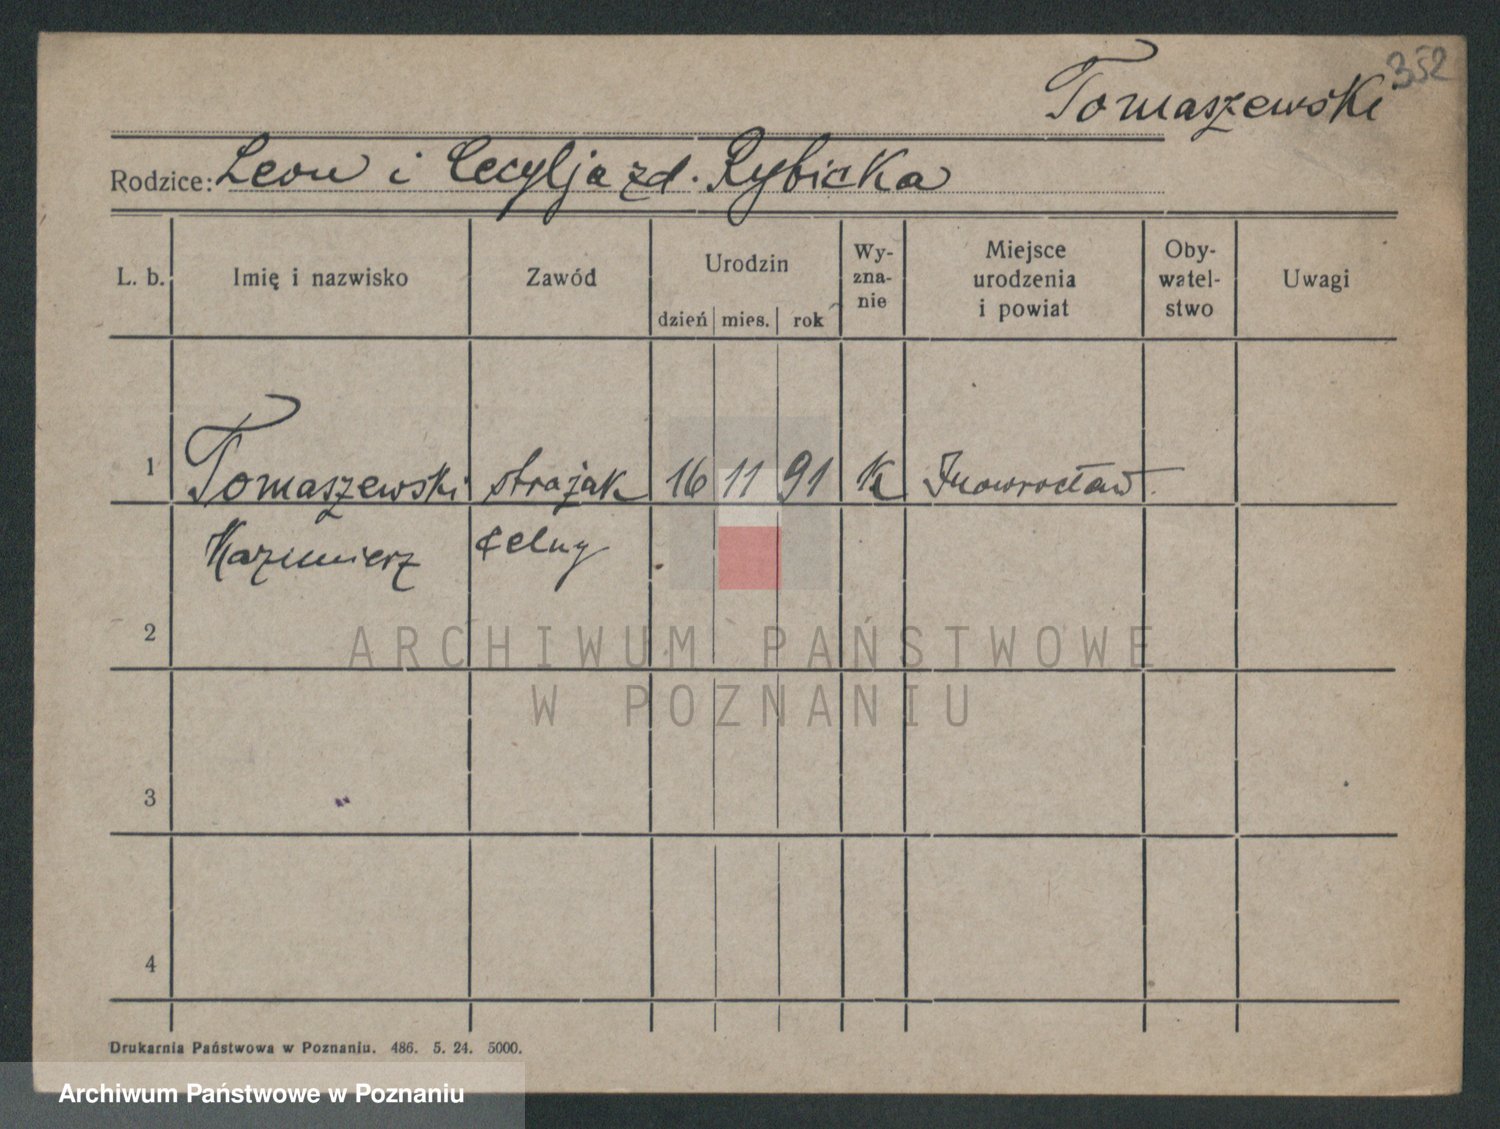 352
Tomaszewski
Rodzice: Leon i Cecylja zd. Rybicka
L. b. Imię i nazwisko Zawód Urodzin dzień mies. rok Wy-zna-nie Miejsce urodzenia i powiat Oby-watel-stwo Uwagi
1 Tomaszewski strażak 16 11 91 k Inowrocław
Kazimierz celny
2
ARCHIWUM PAŃSTWOWE
W POZNANIU
3
4
Drukarnia Państwowa w Poznaniu. 486. 5. 24. 5000.
Archiwum Państwowe w Poznaniu